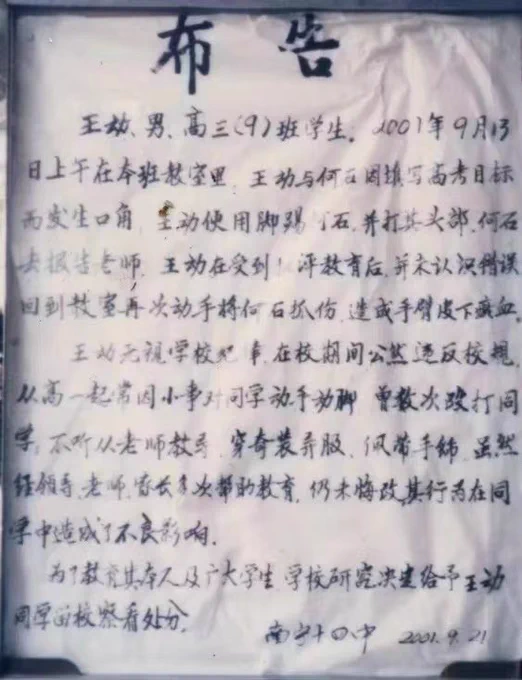 布告
王动、男、高三(9)班学生。2001年9月13
日上午在本班教室里，王动与何石因填写高考目标
而发生口角，王动便用脚踢 石，并打其头部，何石
去报告老师，王动在受到 评教育后，并未认识错误
回到教室再次动手将何石抓伤，造成手臂皮下瘀血。
王动无视学校纪律，在校期间公然违反校规，
从高一起常因小事对同学动手动脚，曾数次殴打同
学，不听从老师教导，穿奇装异服，佩带手饰，虽然
经领导、老师、家长多次帮助教育，仍未悔改，其行为在同
学中造成了不良影响。
为了教育其本人及广大学生，学校研究决定给予王动
同学留校察看处分。
南宁十四中 2001.9.21